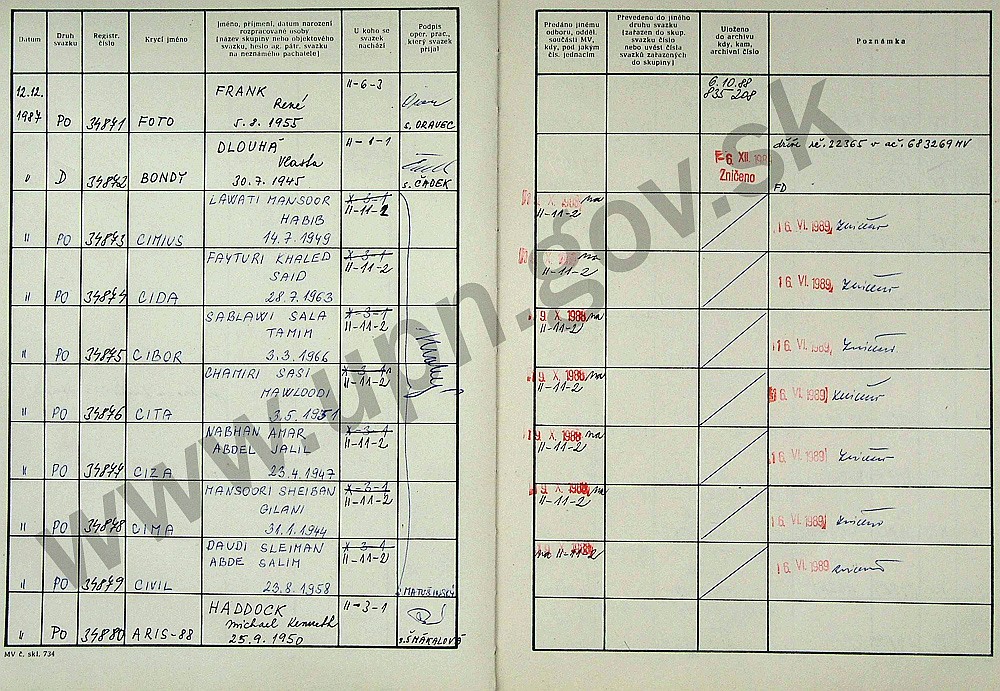 Datum
Druh svazku
Registr. číslo
Krycí jméno
Jméno, příjmení, datum narození
rozpracované osoby
(název skupiny nebo objektového
svazku, heslo ag. pátr. svazku
na neznámého pachatele)
U koho se
svazek
nachází
Podpis
oper. prac.,
který svazek
přijal
Předáno jinému
odboru, odděl.
součásti MV,
kdy, pod jakým
čís. jednacím
Převedeno do jiného
druhu svazku
(zařazen do skup.
svazku číslo
nebo uvést čísla
svazků zařazených
do skupiny)
Uloženo
do archivu
kdy, kam,
archivní číslo
Poznámka
12.12.
1987 PO 34871 FOTO FRANK René 5.8.1955 II-6-3 s. ORAVEC 6.10.88 835 208
" D 34872 BONDY DLOUHÁ Vlasta 30.7.1945 II-1-1 s. ČADEK 6. XII. Zničeno dříve rč. 22365 v ač. 683269 MV FD
" PO 34873 CIMIUS LAWATI MANSOOR HABIB 14.7.1949 X-3-1 II-11-2 X. 1988 na II-11-2 16. VI. 1989 zničeno
" PO 34874 CIDA FAYTURI KHALED SAID 28.7.1963 X-3-1 II-11-2 na II-11-2 16. VI. 1989 zničeno
" PO 34875 CIBOR SABLAWI SALA TAMIM 3.3.1966 X-3-1 II-11-2 19. X. 1988 na II-11-2 16. VI. 1989 zničeno
" PO 34876 CITA CHAMIRI SASI MAWLOODI 3.5.1951 X-3-1 II-11-2 19. X. 1988 na II-11-2 16. VI. 1989 zničeno
" PO 34877 CIZA NABHAN AMAR ABDEL JALIL 23.4.1947 X-3-1 II-11-2 19. X. 1988 na II-11-2 16. VI. 1989 zničeno
" PO 34878 CIMA MANSOORI SHEIBAN GILANI 31.1.1944 X-3-1 II-11-2 19. X. 1988 na II-11-2 16. VI. 1989 zničeno
" PO 34879 CIVIL DAUDI SLEIMAN ABDE SALIM 23.8.1958 X-3-1 II-11-2 s. MATUŠINSKÝ na II-11-2 16. VI. 1989 zničeno
" PO 34880 ARIS-88 HADDOCK michael Kenneth 25.9.1950 II-3-1 s. ŠMÁKALOVÁ
MV č. skl. 734
www.upn.gov.sk